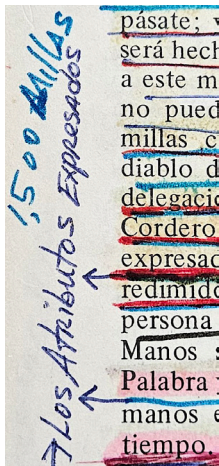 1,500 Millas
→ Los Atributos Expresados
pásate;
será hech
a este m
no pued
millas c
diablo d
delegació
Cordero
expresad
redimido
persona
Manos
Palabra
manos e
tiempo